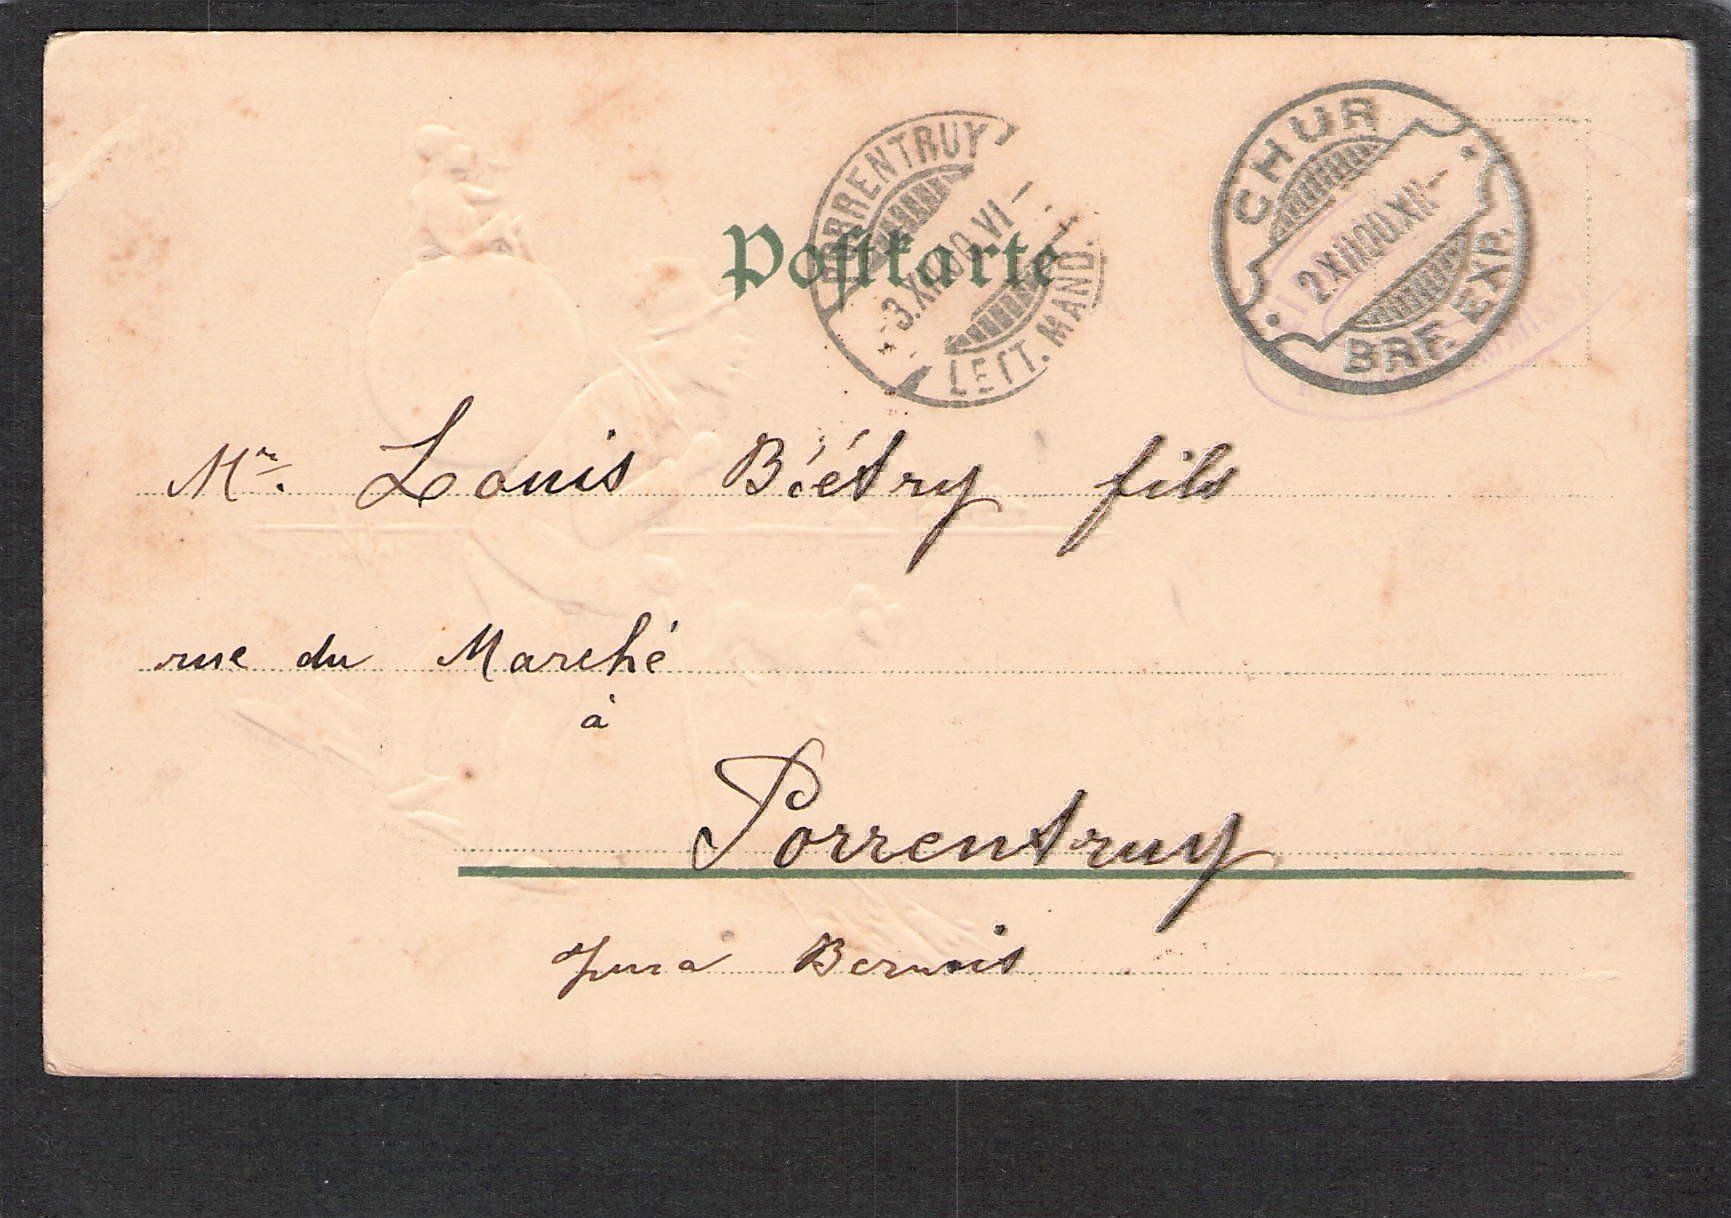 Postkarte
PORRENTRUY
-3.XII.00.VI-
LETT. MAND.
CHUR
2.XII.00.XII-
BRF. EXP.
Mr. Louis Biétry fils
rue du Marché
à
Porrentruy
Jura Bernois